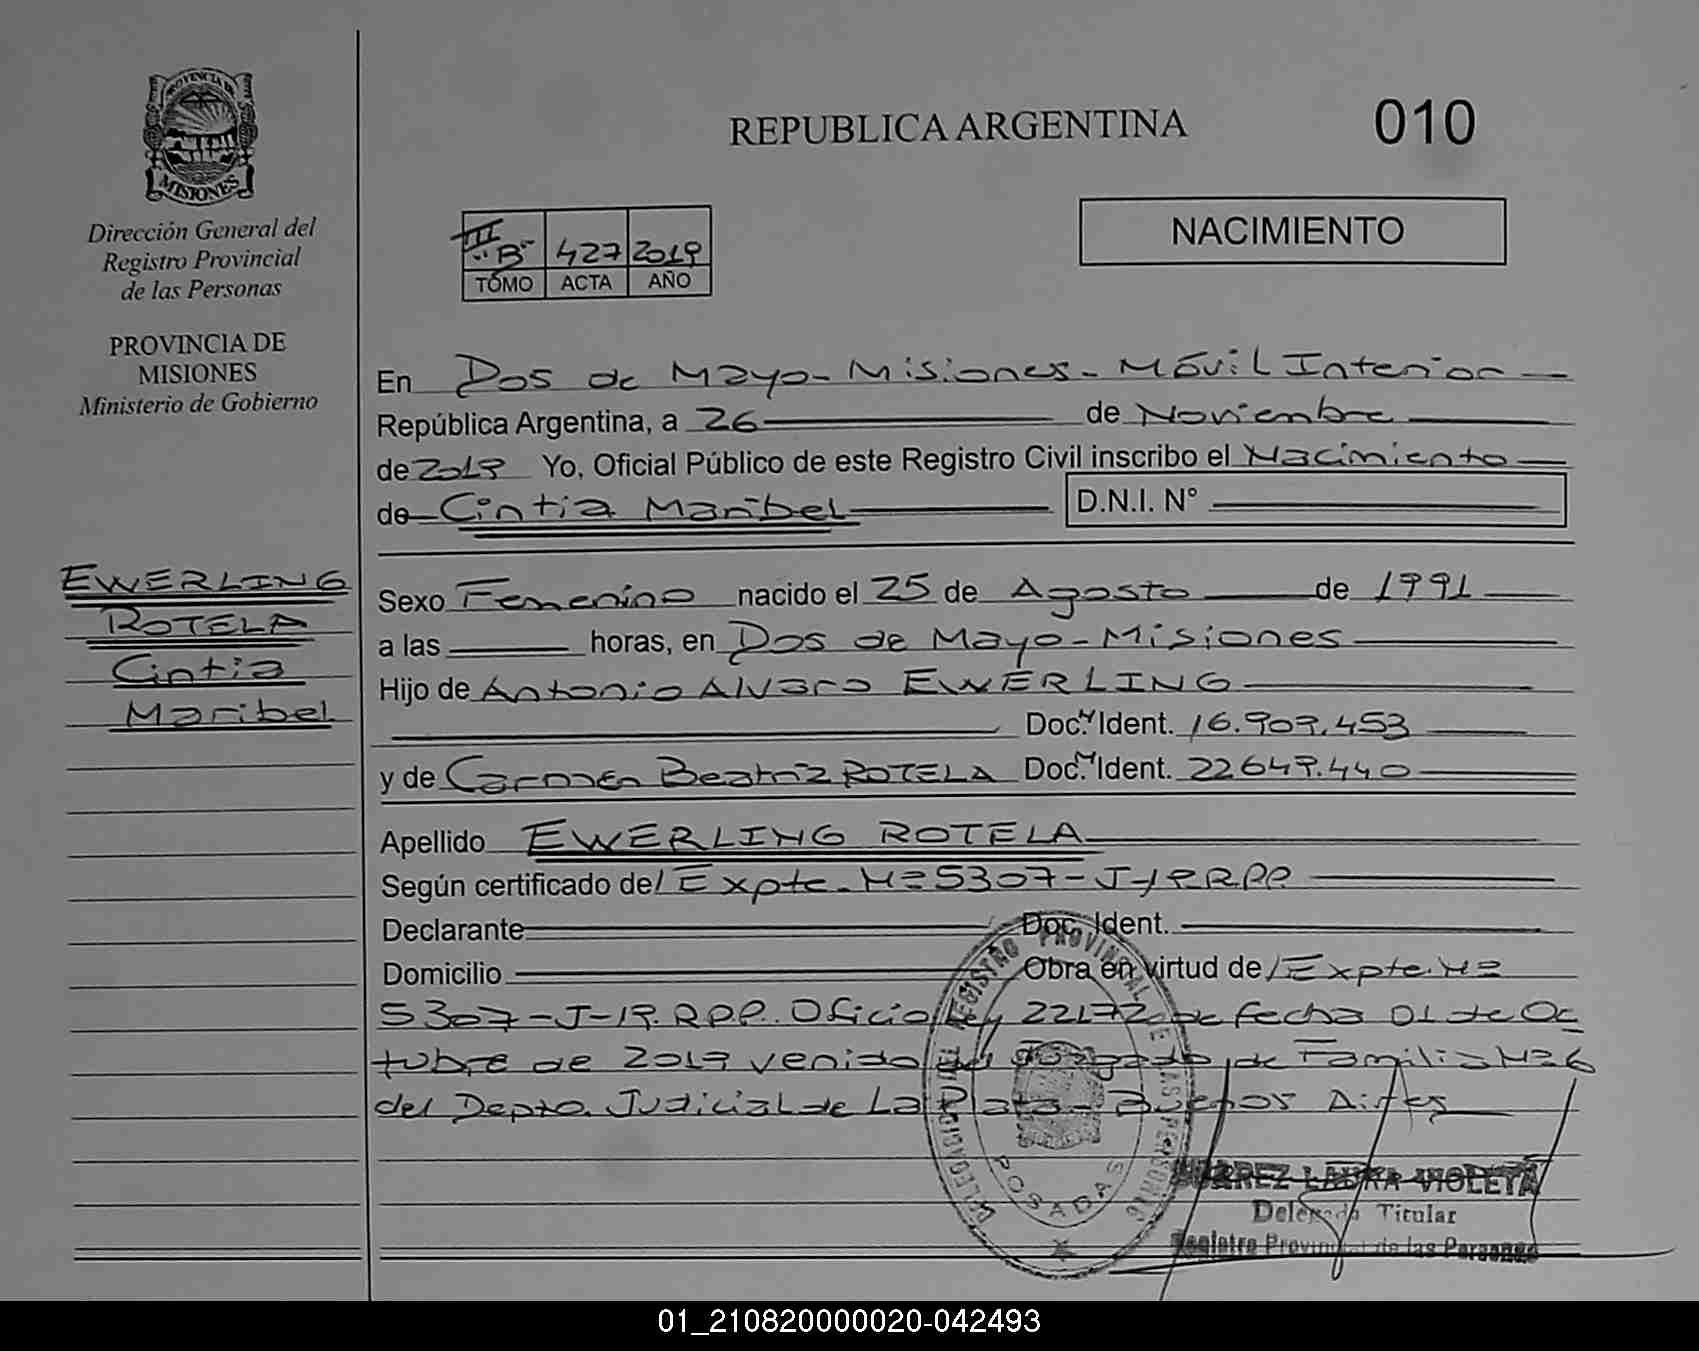 PROVINCIA DE
MISIONES
Dirección General del
Registro Provincial
de las Personas
PROVINCIA DE
MISIONES
Ministerio de Gobierno
EWERLING
ROTELA
Cintia
Maribel
REPUBLICA ARGENTINA
010
III "B" 427 2019
TOMO ACTA AÑO
NACIMIENTO
En Dos de Mayo - Misiones - Móvil Interior
República Argentina, a 26 de Noviembre
de 2019 Yo, Oficial Público de este Registro Civil inscribo el Nacimiento
de Cintia Maribel D.N.I. N°
Sexo Femenino nacido el 25 de Agosto de 1991
a las horas, en Dos de Mayo - Misiones
Hijo de Antonio Alvaro EWERLING
Doc. Ident. 16.909.453
y de Carmen Beatriz ROTELA Doc. Ident. 22649.440
Apellido EWERLING ROTELA
Según certificado de/ Expte. Nº 5307-J-19.RPP
Declarante Doc. Ident.
Domicilio Obra en virtud de/ Expte. Nº
5307-J-19.RPP. Oficio Ley 22172 de fecha 01 de Oc
tubre de 2019 venido del Juzgado de Familia Nº 6
del Depto. Judicial de La Plata - Buenos Aires
DELEGACION DEL REGISTRO PROVINCIAL DE LAS PERSONAS
POSADAS
SUAREZ LAURA VIOLETA
Delegada Titular
Registro Provincial de las Personas
01_210820000020-042493